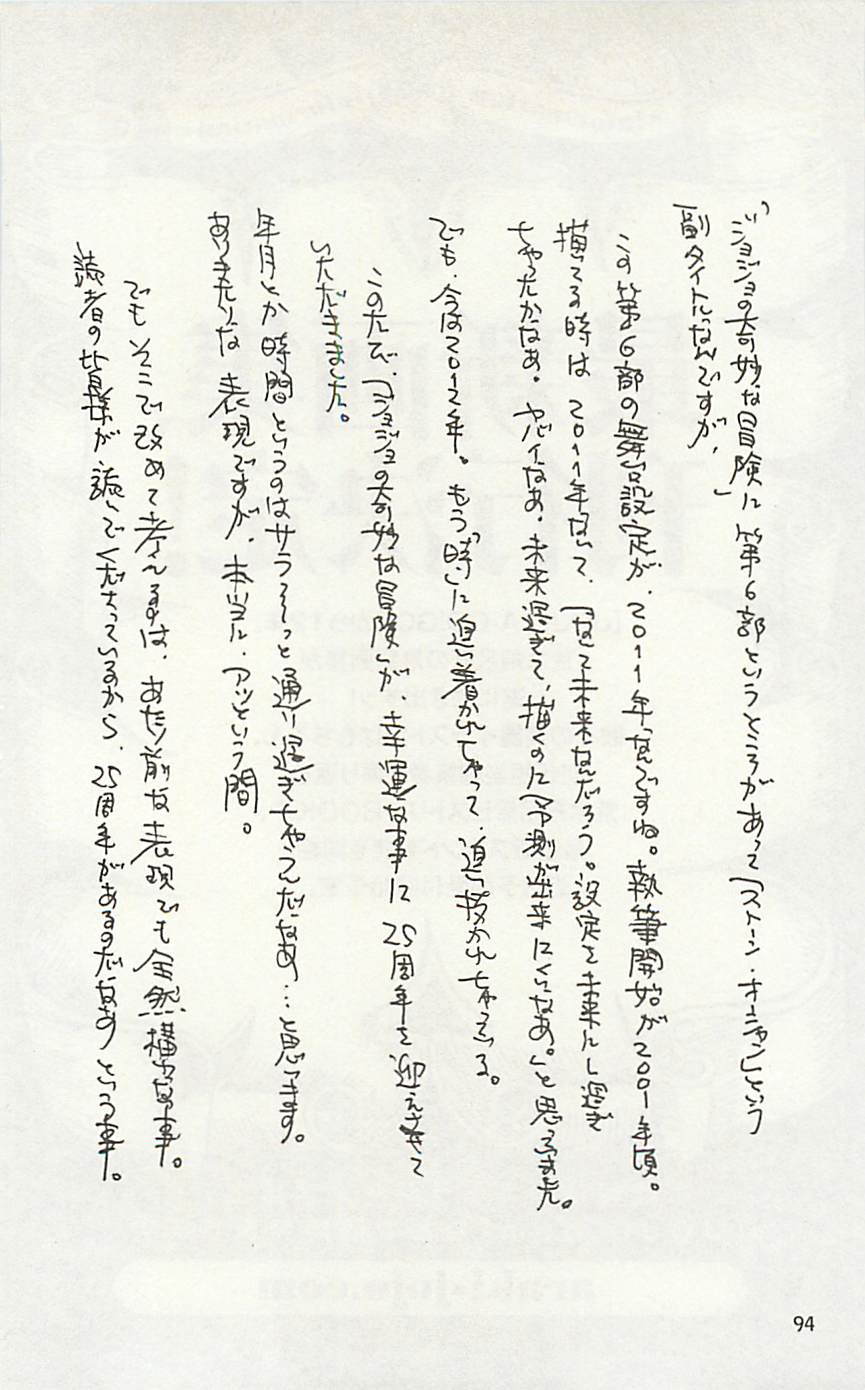 『ジョジョの奇妙な冒険』に第6部というところがあって「ストーン・オーシャン」という
副タイトルなんですが、
この第6部の舞台設定が、2011年なんですね。執筆開始が2001年頃。
描いてる時は2011年なんて、「なんて未来なんだろう。設定を未来にし過ぎ
ちゃったかなあ。ヤバイなあ。未来過ぎて、描くのに予測が出来にくいなあ。」と思ってました。
でも、今は2012年。もう「時」に追い着かれちゃって、追い抜かれちゃっている。
このたび、「ジョジョの奇妙な冒険」が、幸運な事に25周年を迎えさせて
いただきました。
年月とか時間というのはサラ〜っと通り過ぎちゃうんだなあ…と思います。
ありきたりな表現ですが、本当に、アッという間。
でもそこで改めて考えるのは、あたり前な表現でも全然構わない事。
読者の皆様が、読んでくださっているから、25周年があるのだなあという事。
94